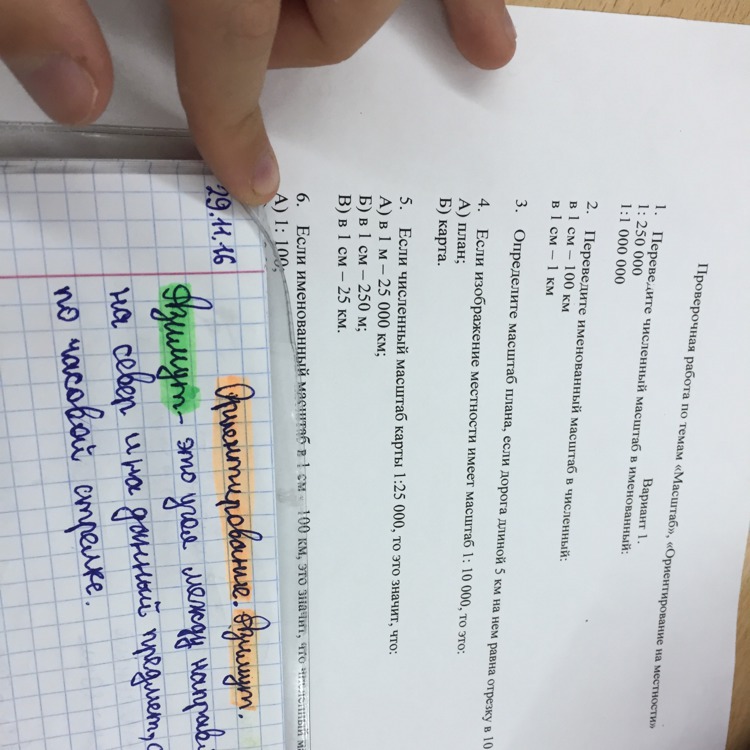 Проверочная работа по темам «Масштаб», «Ориентирование на местности»
Вариант 1.
1. Переведите численный масштаб в именованный:
1: 250 000
1:1 000 000
2. Переведите именованный масштаб в численный:
в 1 см – 100 км
в 1 см – 1 км
3. Определите масштаб плана, если дорога длиной 5 км на нем равна отрезку в 10
4. Если изображение местности имеет масштаб 1: 10 000, то это:
А) план;
Б) карта.
5. Если численный масштаб карты 1:25 000, то это значит, что:
А) в 1 м – 25 000 км;
Б) в 1 см – 250 м;
В) в 1 см – 25 км.
6. Если именованный масштаб в 1 см – 100 км, это значит, что численный
А) 1: 100;
29.11.16
Ориентирование. Азимут.
Азимут - это угол между
на север и на данный предмет,
по часовой стрелке.